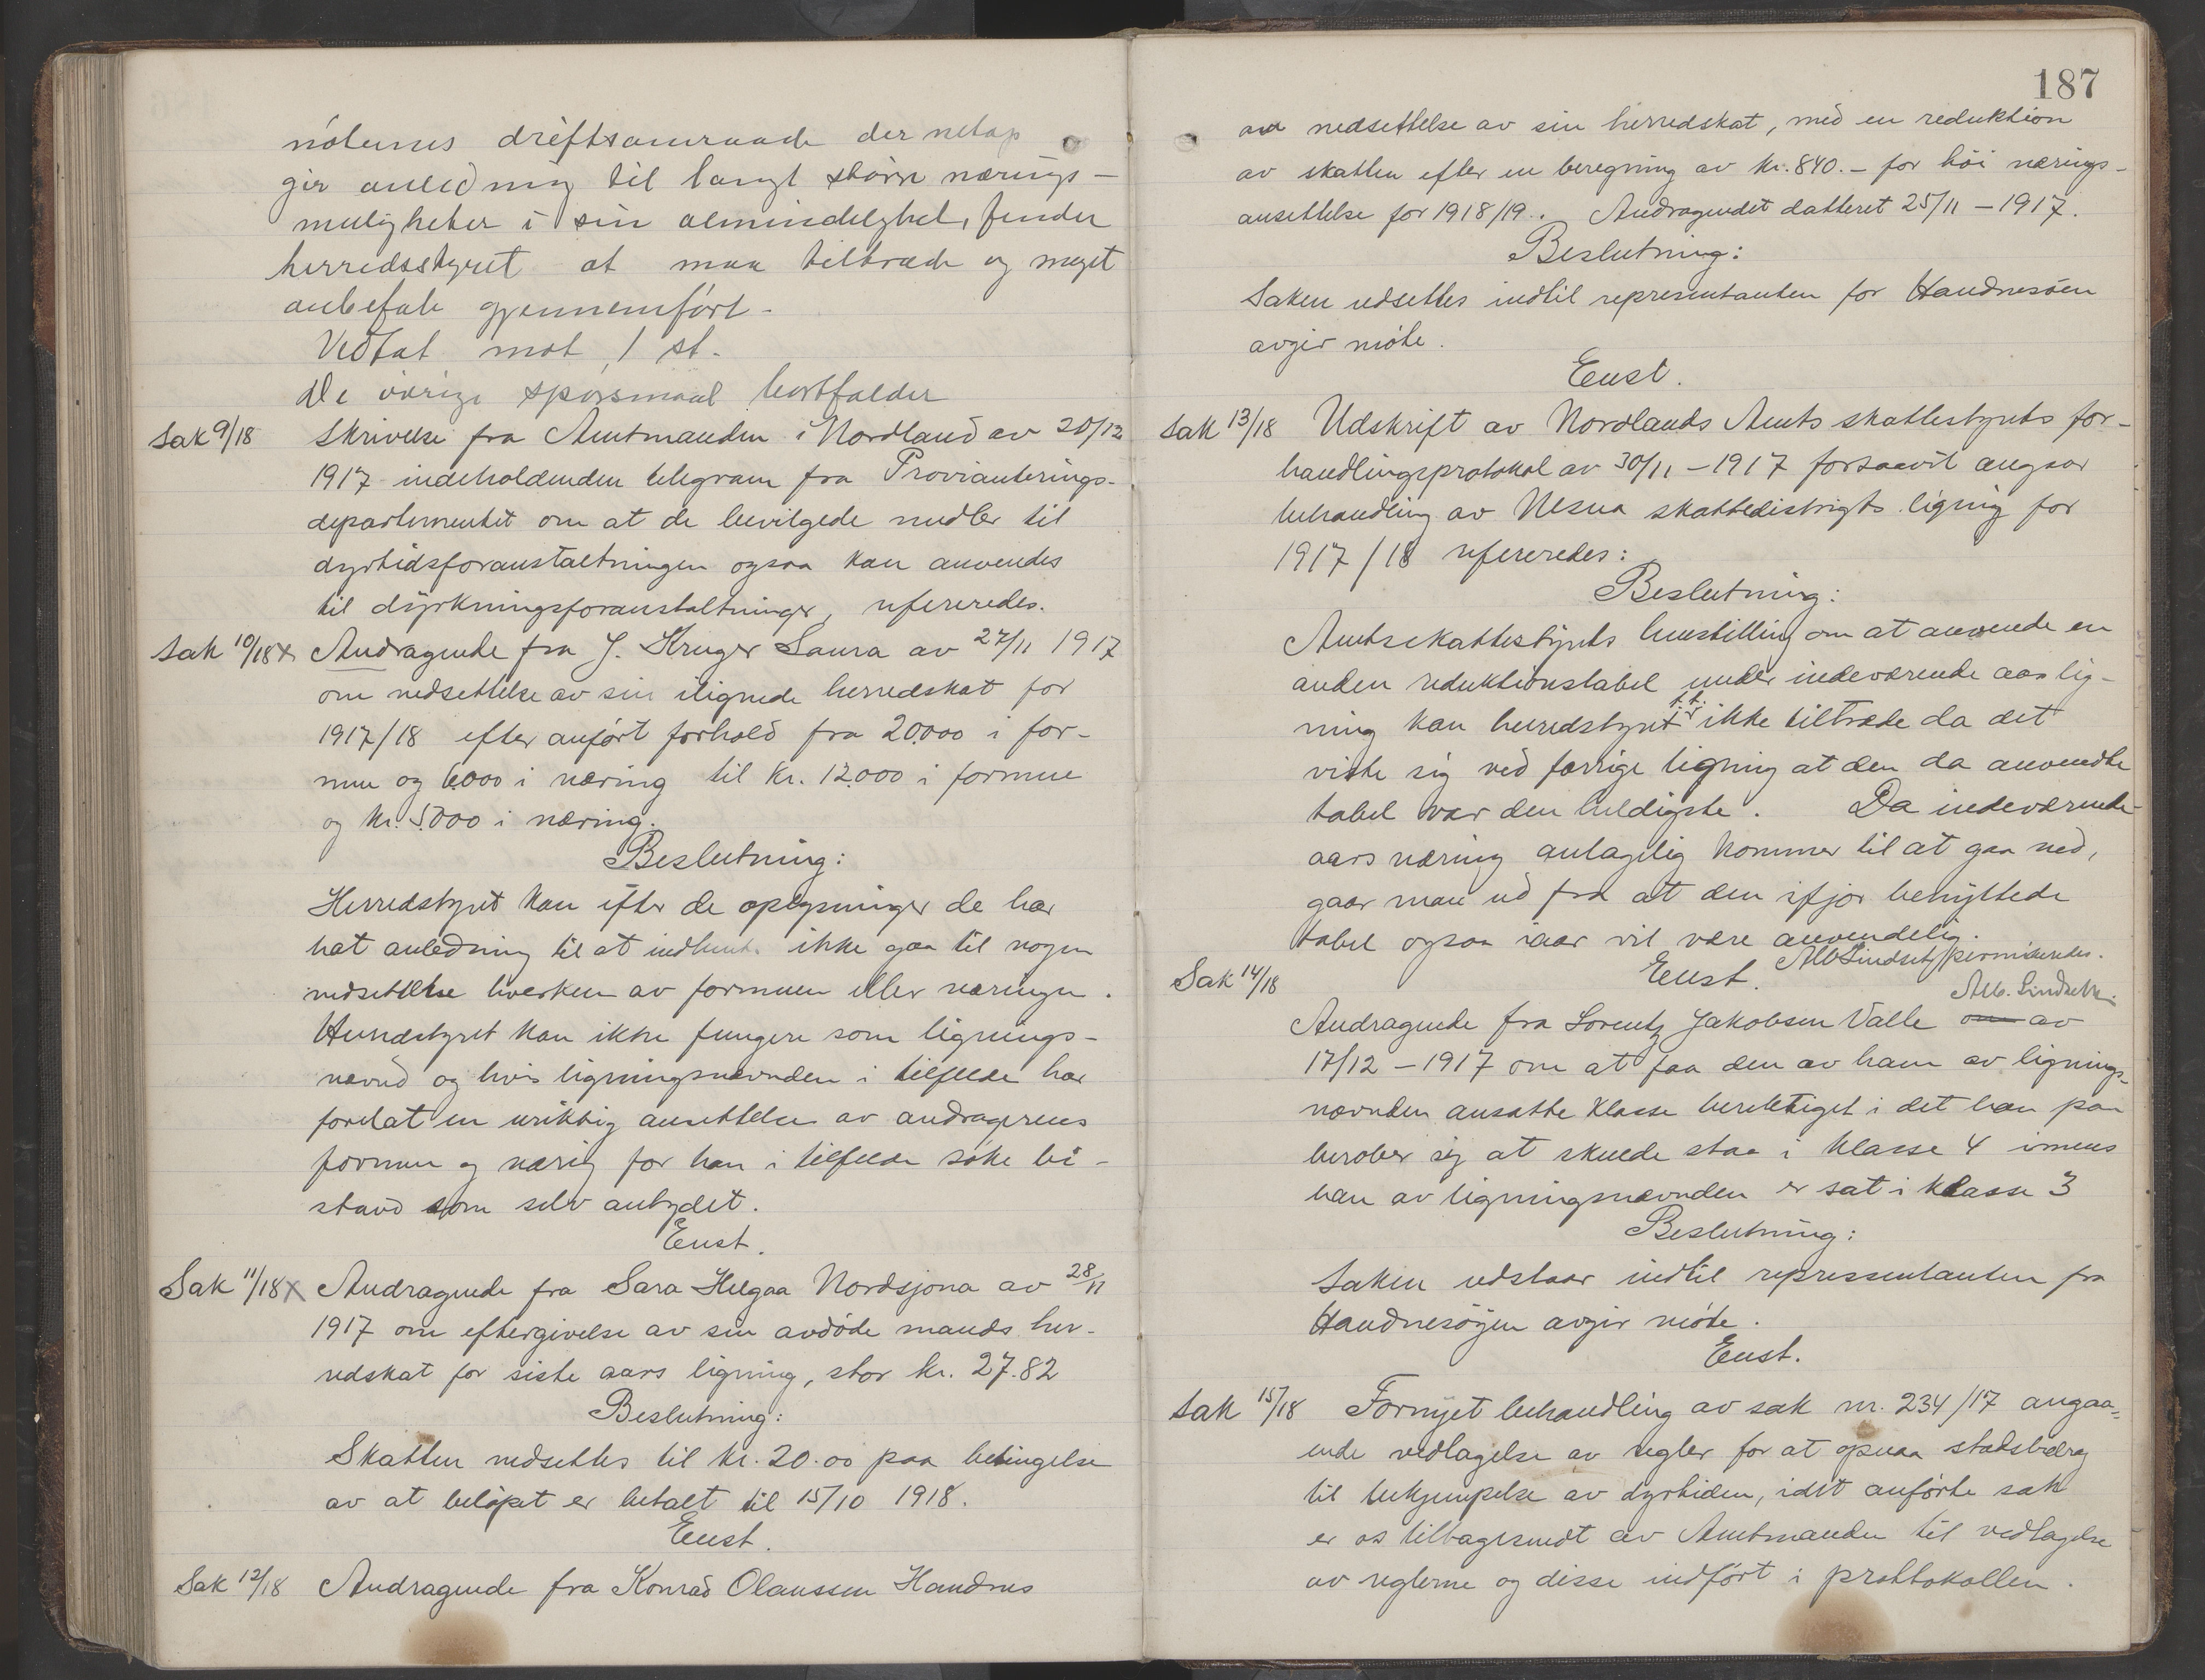 nóternes driftsomraade der netop
gir anledning til langt större nærings-
muligheter i sin almindelighet, finder
herredsstyret at maa tiltræde og meget
anbefale gjennemfört.
Vedtat mot 1 st.
De övrige spörsmaal bortfalder
Sak 9/18 Skrivelse fra Amtmanden i Nordland av 20/12
1917 indeholdenden telegram fra Provianterings-
departementet om at de bevilgede midler til
dyrtidsforanstaltningen ogsaa kan anvendes
til dyrkningsforanstaltninger, refereredes.
Sak 10/18 x Andragende fra J. Kruger Saura av 27/11 1917
om nedsettelse av sin ilignede herredskat for
1917/18 efter anfört forhold fra 20.000 i for-
mue og 6.000 i næring til kr. 12.000 i formue
og kr. 5.000 i næring.
Beslutning:
Herredstyret kan efter de oplysninger de har
hat anledning til at indhente ikke gaa til nogen
nedsettelse hverken av formuen eller næringen.
Herredstyret kan ikke fungere som lignings-
nævnd og hvis ligningsnævnden i tilfelde har
foretat en uriktig ansettelse av andragerens
formue og næring for han i tilfelde söke bi-
stand som selv antydet.
Enst.
Sak 11/18 x Andragende fra Sara Helgaa Nordsjona av 28/11
1917 om eftergivelse av sin avdöde mands her-
redskat for siste aars ligning, stor kr. 27.82
Beslutning:
Skatten nedsettes til kr. 20.00 paa betingelse
av at belöpet er betalt til 15/10 1918.
Enst.
Sak 12/18 Andragende fra Konrad Olaussen Handnes
187
om nedsettelse av sin herredskat, med en reduktion
av skatten efter en beregning av kr. 840.- for höi nærings-
ansettelse for 1918/19. Andragendet datteret 25/11 - 1917.
Beslutning:
Saken udsettes indtil representanten for Handnesöen
avgir möte.
Enst.
Sak 13/18 Udskrift av Nordlands Amts skattestyrets for-
handlingsprotokol av 30/11 - 1917 forsaavit angaar
behandling av Nesna skattedistrigts ligning for
1917/18 refereredes:
Beslutning:
Amtsskattestyrets henstilling om at anvende en
anden reduktionstabel under indeværende aas lig-
ning kan herredstyret f.t. ikke tiltræde da det
viste sig ved forrige ligning at den da anvendte
tabel var den heldigste. Da indeværende
aars næring antagelig kommer til at gaa ned,
gaar man ud fra at den ifjor benyttede
tabel ogsaa iaar vil være anvendelig.
Enst. Alb Lindset permiteredes.
Sak 14/18 Alb. Lindseth
Andragende fra Lorentz Jakobsen Valle om av
17/12 - 1917 om at faa den av ham av lignings-
nævnden ansatte klasse berettiget i det han paa
berober sig at skulde staa i klasse 4 imens
han av ligningsnævnden er sat i klasse 3
Beslutning:
Saken udstaar indtil repressentanten fra
Handnesöyen avgir möte.
Enst.
Sak 15/18 Fornyet behandling av sak nr. 234/17 angaa-
ende vedtagelse av regler for at opnaa statsbidrag
til bekjempelse av dyrtiden, idet anförte sak
er os tilbagesendt av Amtmanden til vedtagelse
av reglerne og disse indfört i prottokollen.